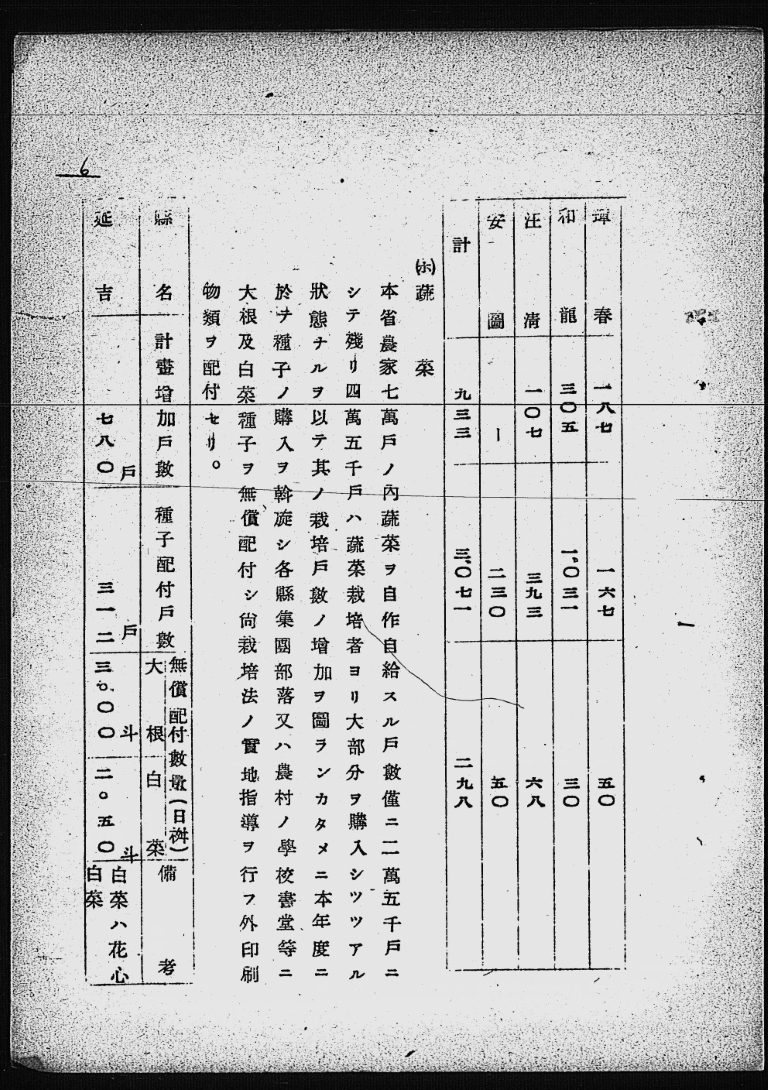 琿春 一八七 一六七 五〇
和龍 三〇五 一、〇三一 三〇
汪清 一〇七 三九三 六八
安圖 ー 二三〇 五〇
計 九三三 三、〇七一 二九八
(ホ)蔬菜
本省農家七萬戶ノ內蔬菜ヲ自作自給スル戶數僅ニ二萬五千戶ニ
シテ殘リ四萬五千戶ハ蔬菜栽培者ヨリ大部分ヲ購入シツツアル
狀態ナルヲ以テ其ノ栽培戶數ノ增加ヲ圖ランカタメニ本年度ニ
於テ種子ノ購入ヲ斡旋シ各縣集團部落又ハ農村ノ學校書堂等ニ
大根及白菜種子ヲ無償配付シ尙栽培法ノ實地指導ヲ行フ外印刷
物類ヲ配付セリ。
縣名 計畫增加戶數 種子配付戶數 無償配付數量(日桝) 大根 白菜 備考
延吉 七八〇戶 三一二戶 三。〇〇斗 二。五〇斗 白菜ハ花心白菜
6